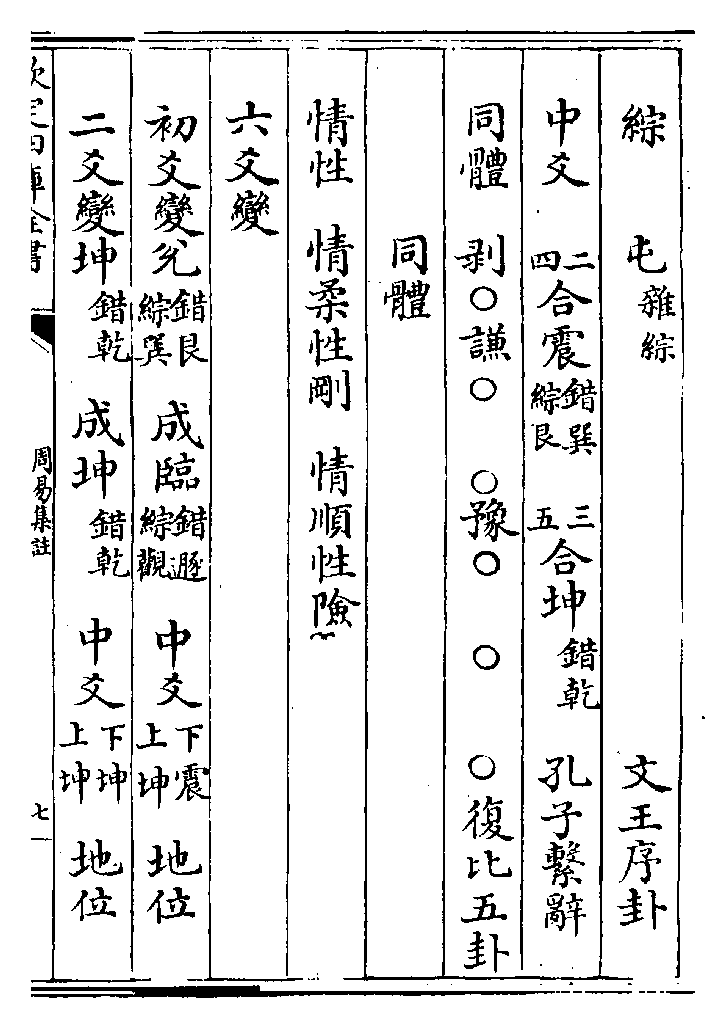 綜　屯雜綜　文王序卦
中爻　二四合震錯巽綜艮　三五合坤錯乾　孔子繫辭
同體　剥○謙○　○豫○　○　○復比五卦
同體
情性　情柔性剛　情順性險
六爻變
初爻變兌錯艮綜巽　成臨錯遯綜觀　中爻下震上坤　地位
二爻變坤錯乾　成坤錯乾　中爻下坤上坤　地位
欽定四庫全書　周易集註　七一